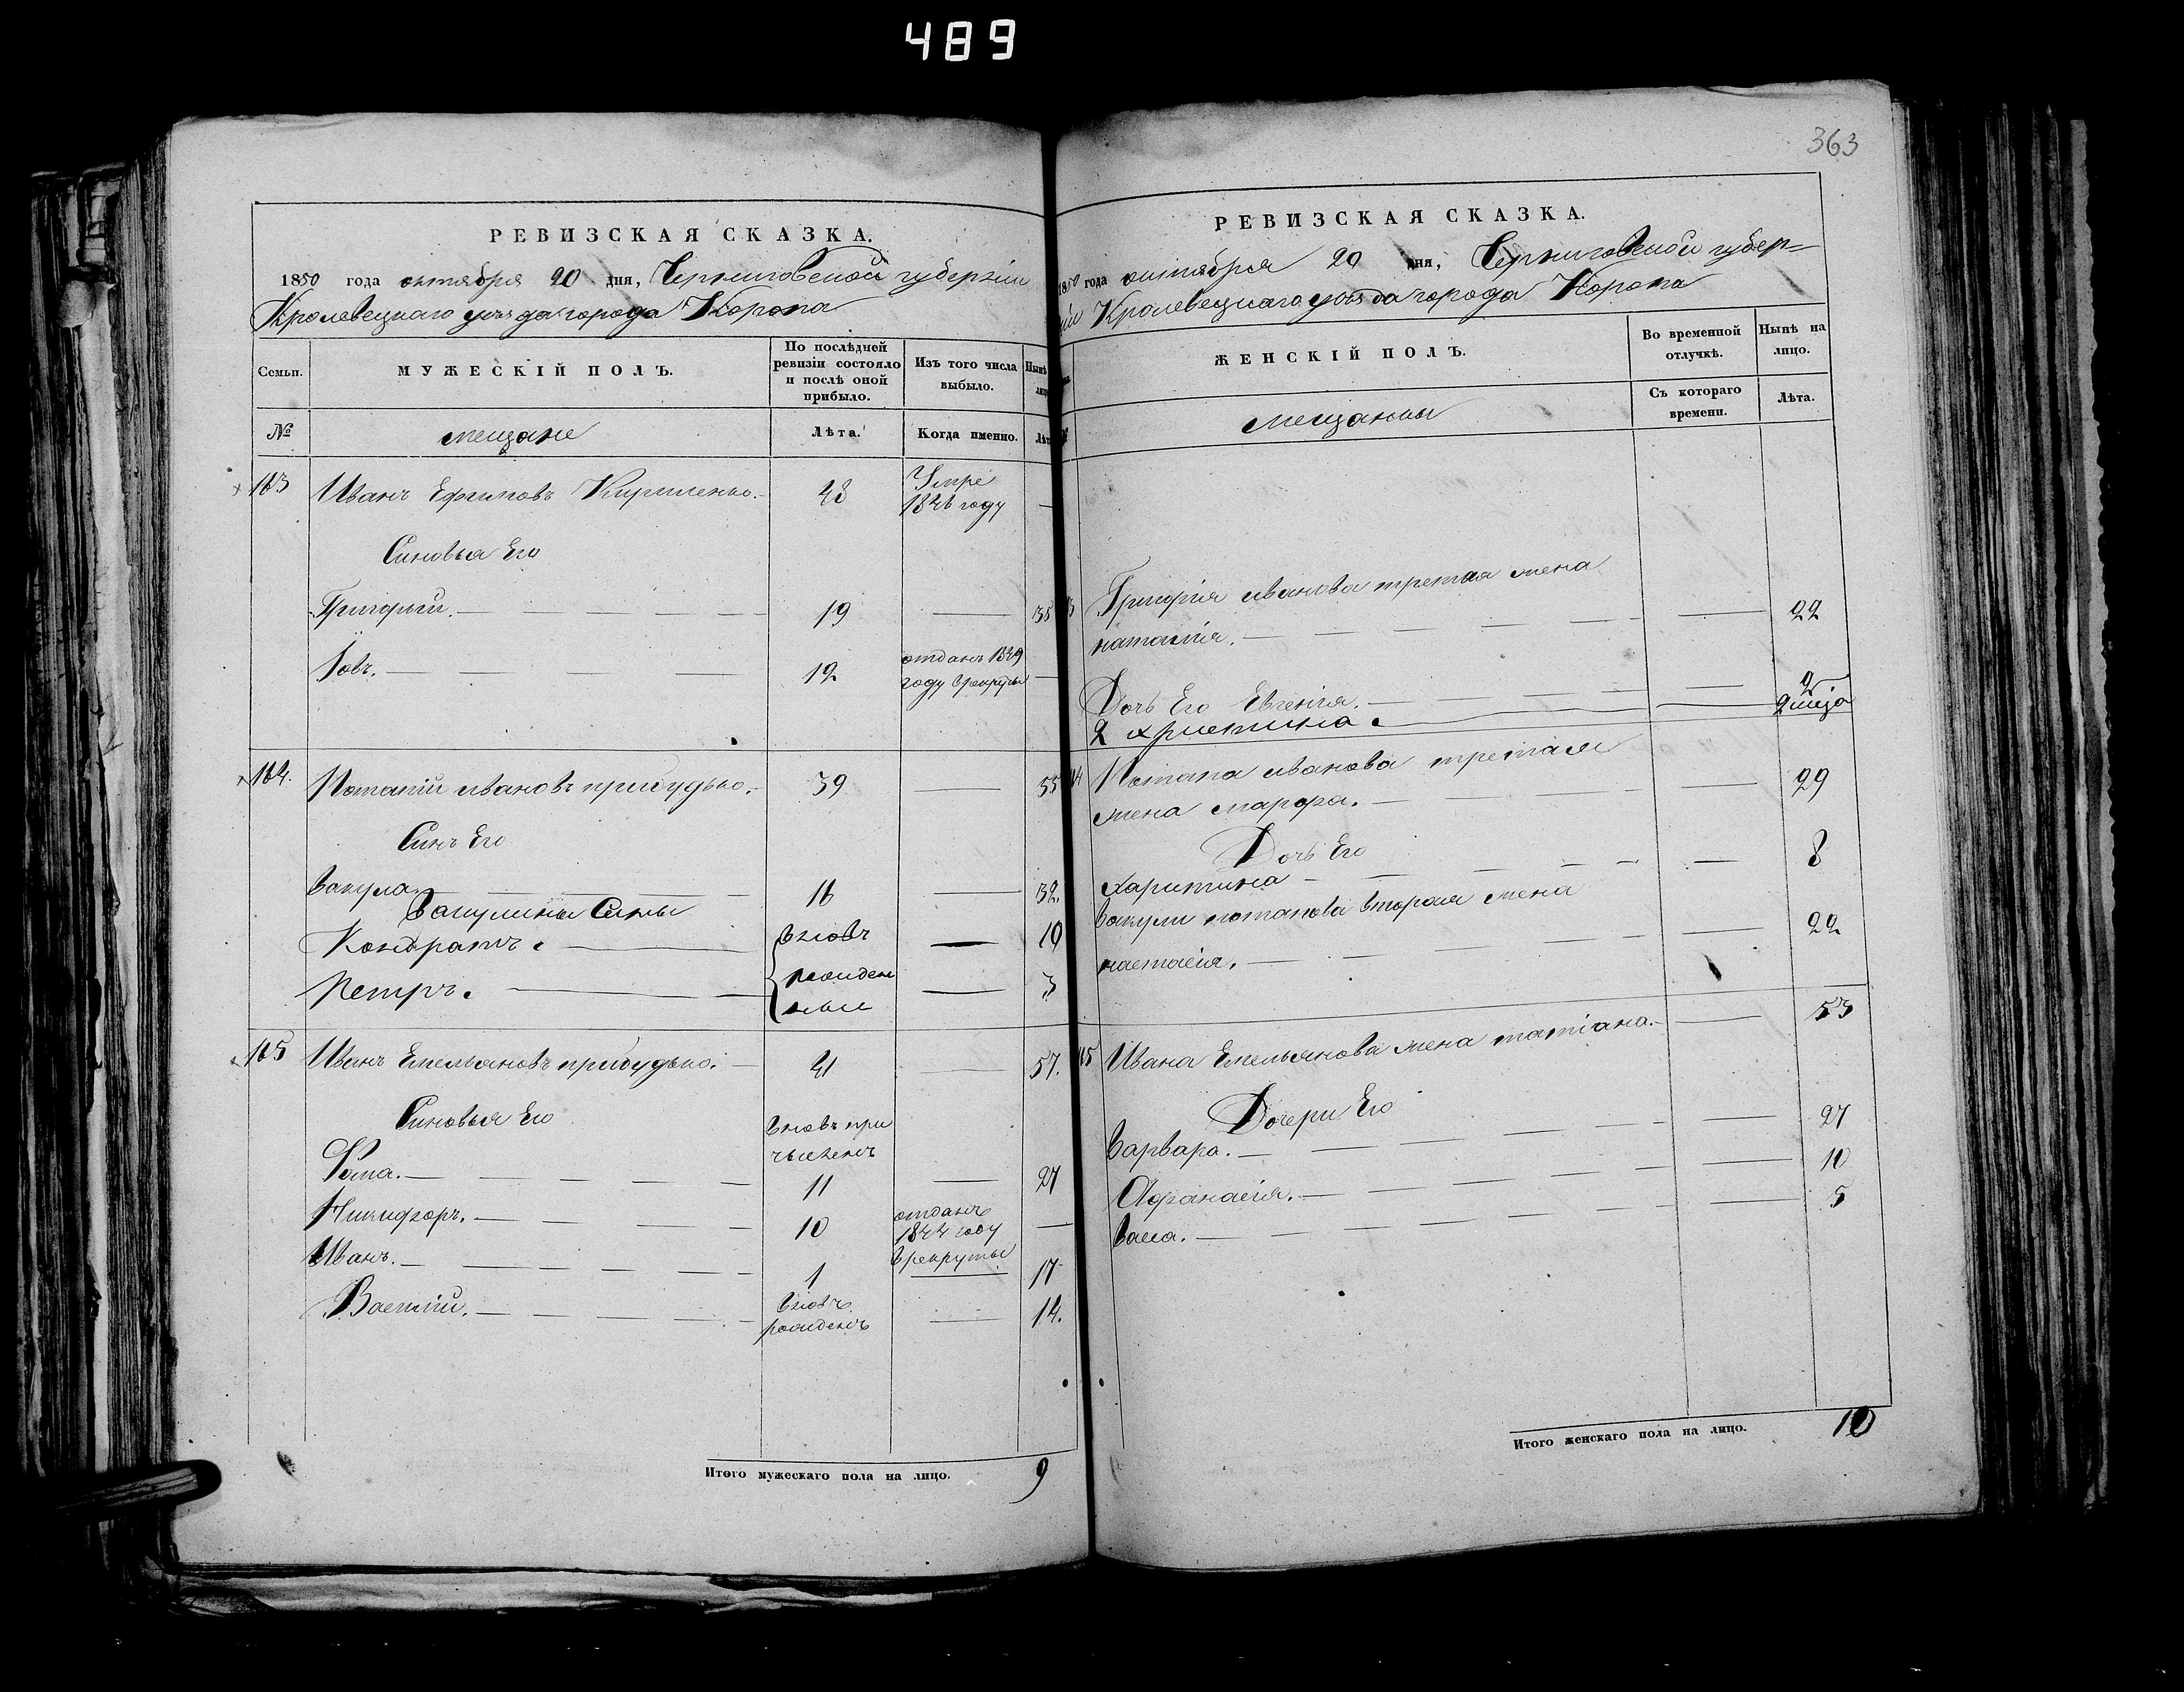 489
РЕВИЗСКАЯ СКАЗКА.
1850 года октября 20 дня, Черниговской губерніи
Кролевецкаго уѣзда города Коропа
Семьи.
МУЖЕСКІЙ ПОЛЪ.
По послѣдней ревизіи состояло и послѣ оной прибыло.
Изъ того числа выбыло.
Нынѣ
№
мещане
Лѣта.
Когда именно.
Лѣт
163 Иванъ Ефимовъ Кириленко. 48 Умре
1846 году —
Синовья Его
Григорий. — 19 — 35
Іовъ. — 12 отданъ 1849
году врекруты —
164. Потапій ивановъ прибудько. 39 — 55
Синъ Его
Вакула — 16 — 32.
Вакулины Сины
Кондратъ. — вновь — 10
Петръ. — рожден — 3
ные
165 Иванъ Емельяновъ прибудько. 41 — 57.
Синовья Его вновь при
численъ
Фома. — 11 — 27
Никифоръ. — 10 отданъ
1844 году —
врекруты
Иванъ. — 1 — 17
Василій. — вновь
рожденъ — 14.
Итого мужескаго пола на лицо. 9
363
РЕВИЗСКАЯ СКАЗКА.
1850 года октября 20 дня, Черниговской губер-
ніи Кролевецкаго уѣзда города Коропа
ЖЕНСКІЙ ПОЛЪ.
Во временной отлучкѣ.
Нынѣ на лицо.
мещанки
Съ котораго времени.
Лѣта.
Григорія иванова третая жена
наталія. — — 22
Дочь Его Евгенія. — —
2 христина. — 2 мѣся
Потапа иванова третая
жена марфа. — — 29
Дочь Его
харитина — — 8
Вакули потапова вторая жена
настасія. — — 22
Ивана Емельянова жена татіана. — 53
Дочери Его
Варвара. — — 27
Афанасія. — — 10
Васа. — — 5
Итого женскаго пола на лицо. 10